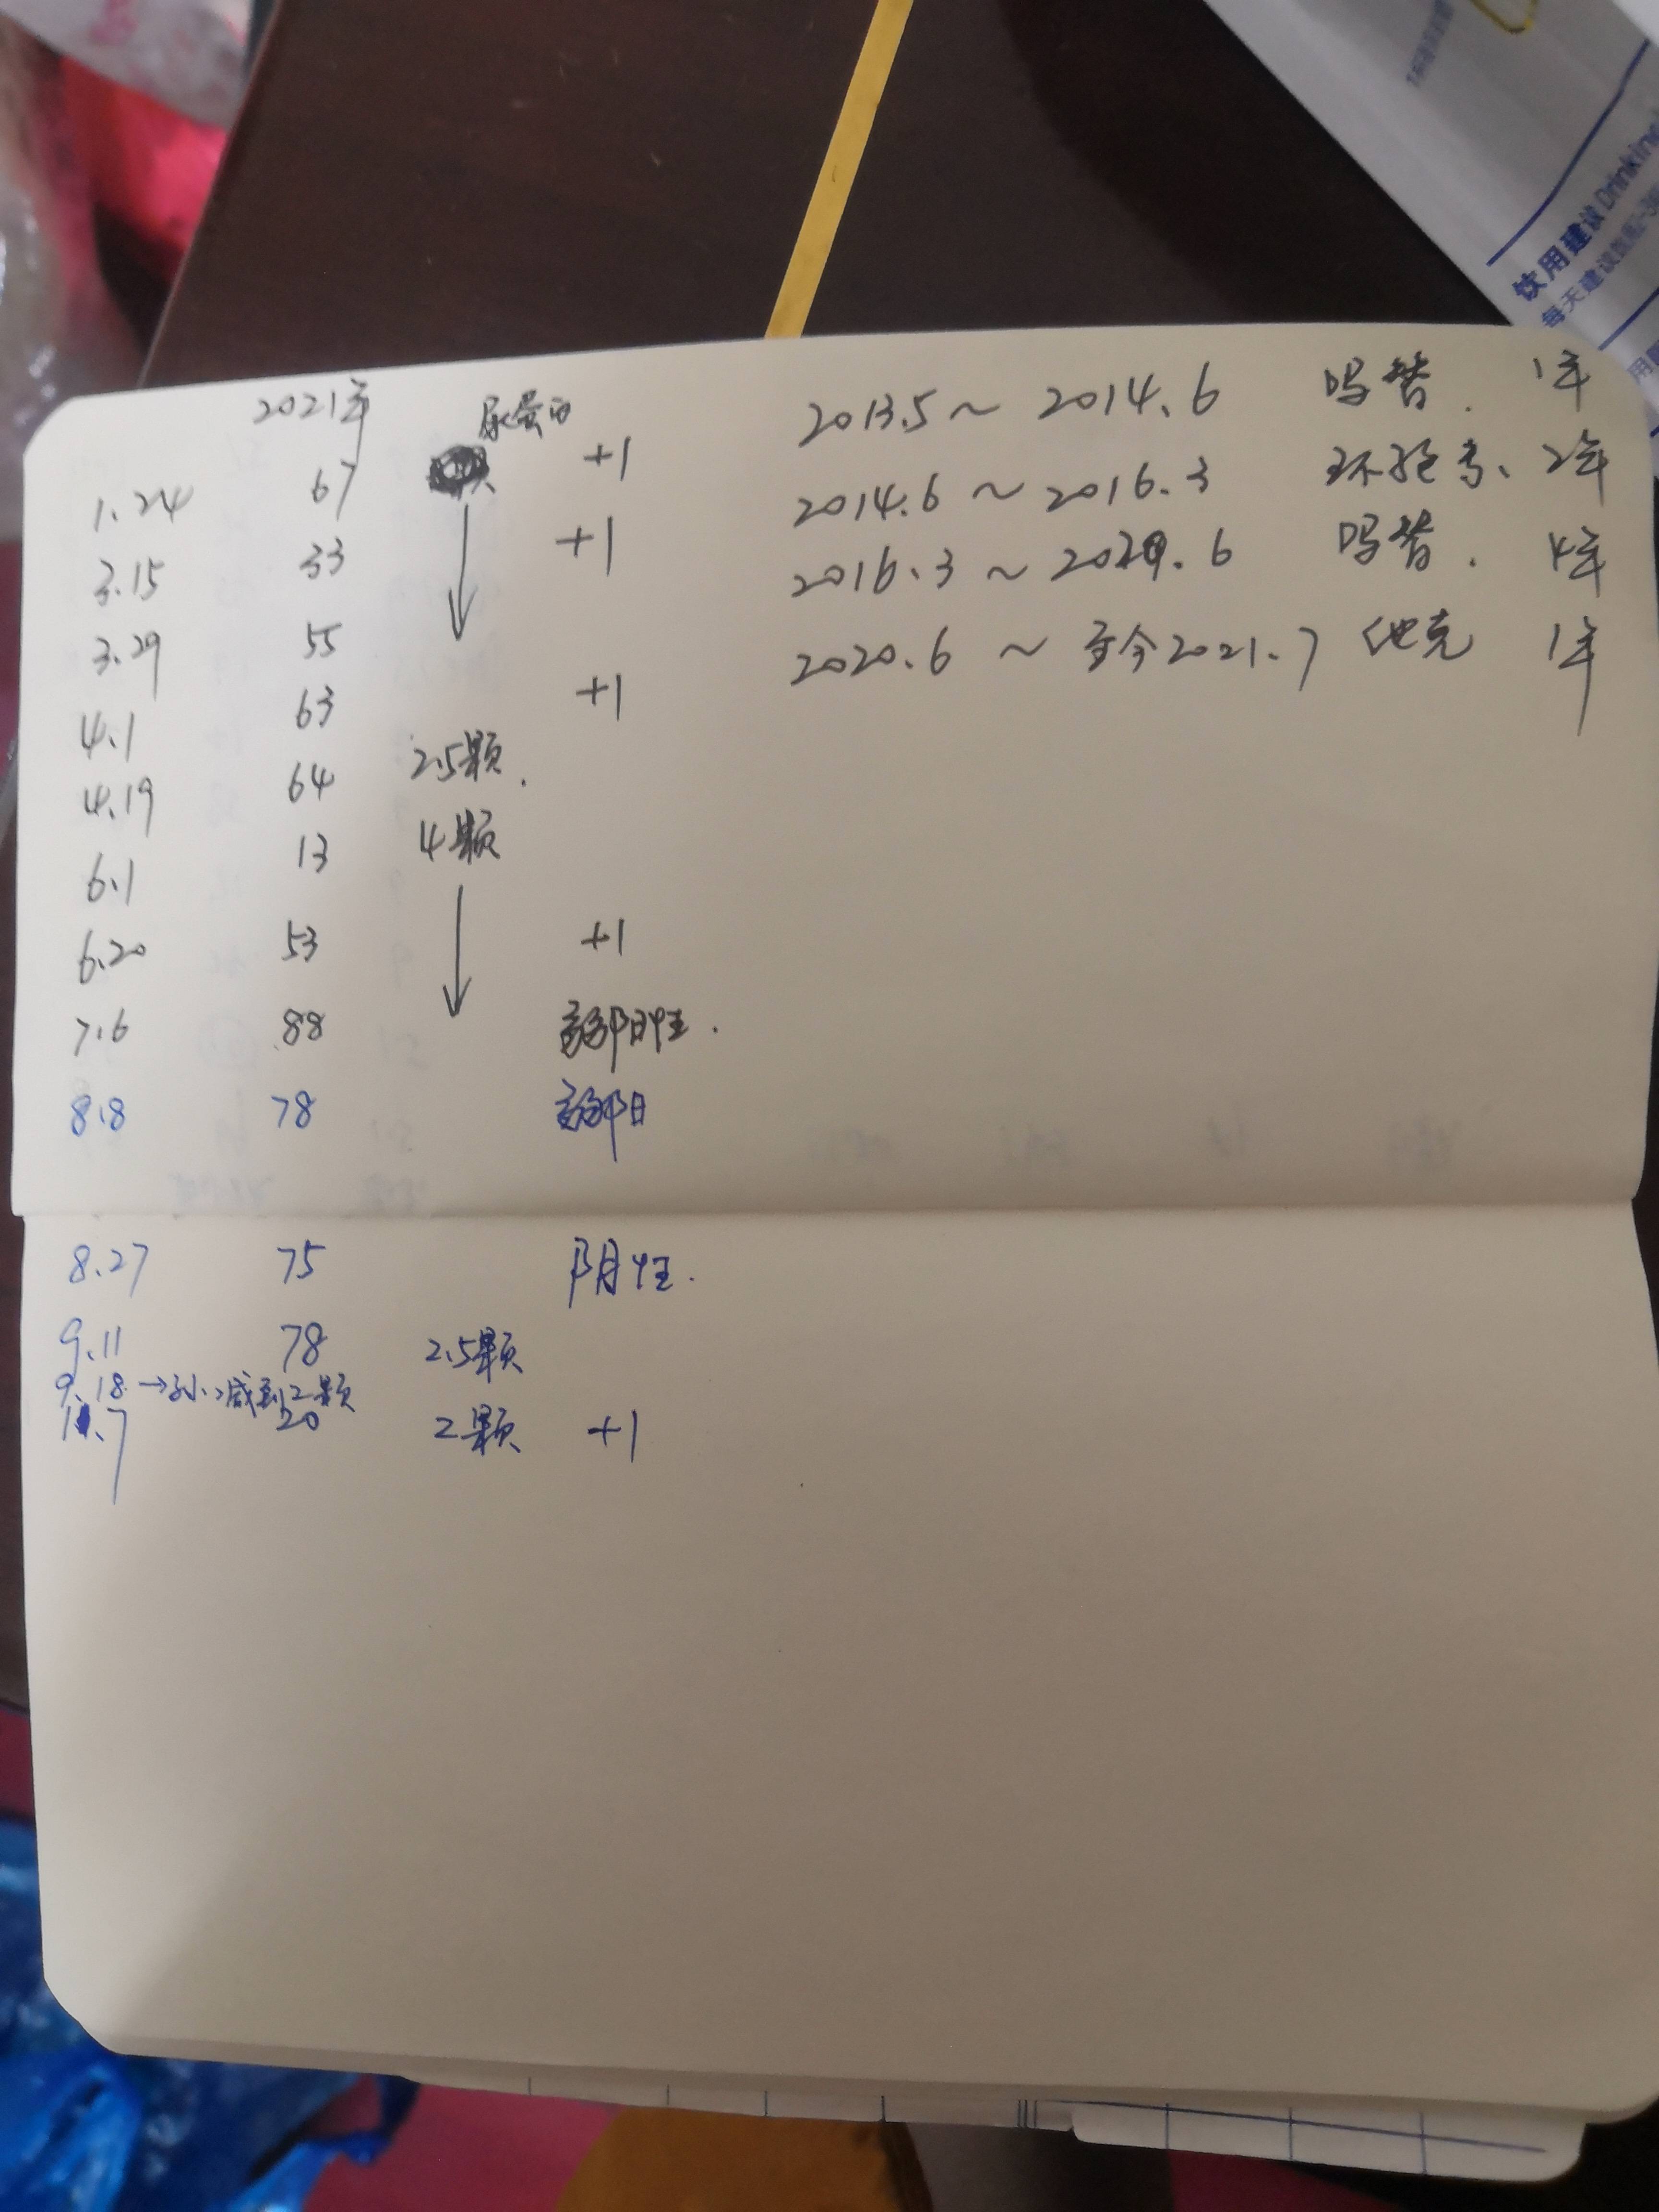 2021年 尿蛋白
1.24 67 +1
3.15 33 +1
3.29 55
4.1 63 +1
4.19 64 2.5颗.
6.1 13 4颗
6.20 53 +1
7.6 88 弱阳性.
8.8 78 弱阳
8.27 75 阴性.
9.11 78 2.5颗
9.18→ 减到2颗
11.7 20 2颗 +1
2013.5～2014.6 吗替. 1年
2014.6～2016.3 环孢素、2年
2016.3～2020.6 吗替. 4年
2020.6～至今2021.7 他克 1年
饮用建议 Drinking
每天建议饮用2-3